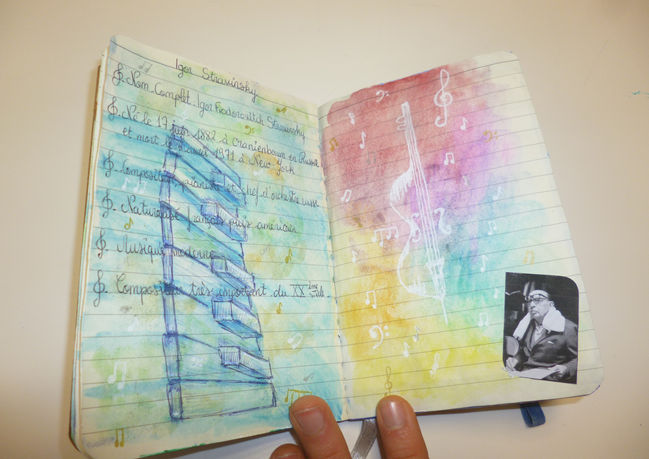 Igor Stravinsky
Nom Complet : Igor Fiodorovitch Stravinsky
Né le 17 juin 1882 à Oranienbaum en Russie
et mort le 6 avril 1971 à New York
Compositeur, pianiste et chef d'orchestre russe
Naturalisé français puis américain
Musique moderne
Compositeur très important du XXème siècle.